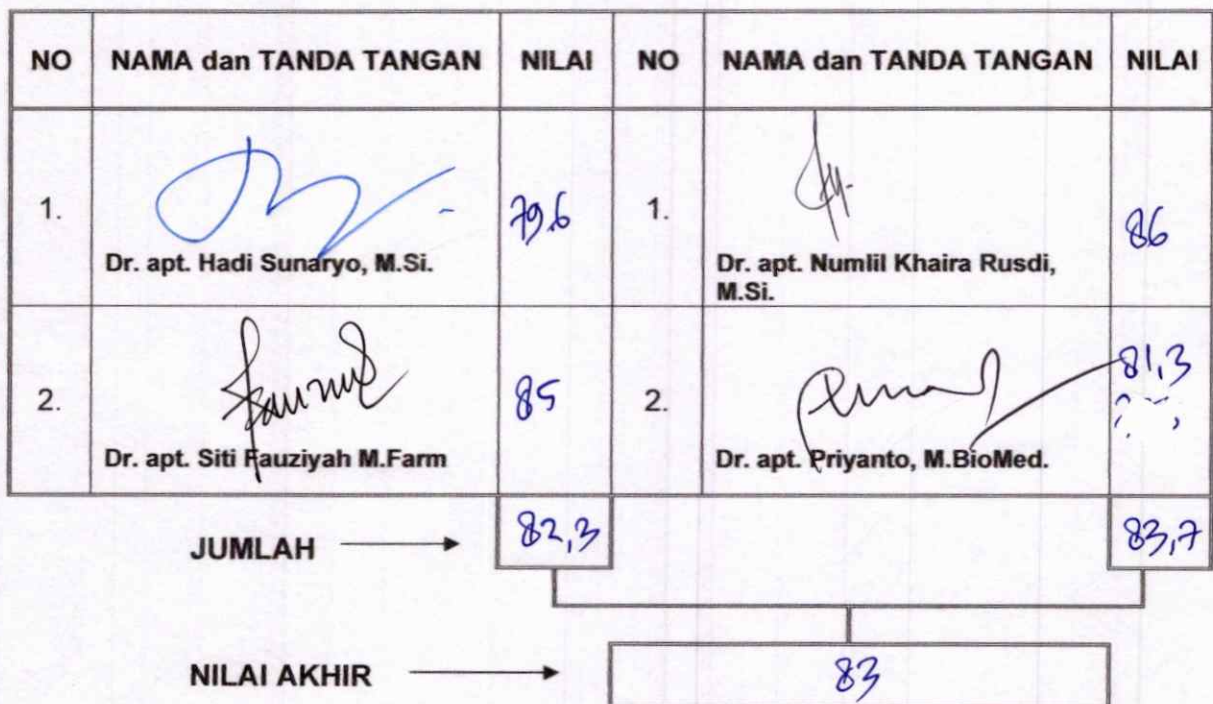 NO NAMA dan TANDA TANGAN NILAI NO NAMA dan TANDA TANGAN NILAI
1. 79,6 1. 86
Dr. apt. Hadi Sunaryo, M.Si. Dr. apt. Numlil Khaira Rusdi,
M.Si.
2. 85 2. 81,3
Dr. apt. Siti Fauziyah M.Farm Dr. apt. Priyanto, M.BioMed.
JUMLAH 82,3 83,7
NILAI AKHIR 83